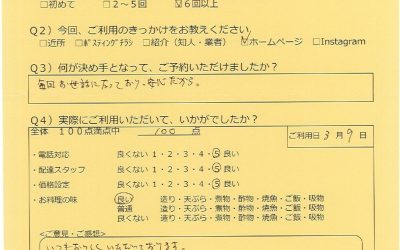 □初めて □2～5回 ☑6回以上
Q2）今回、ご利用のきっかけをお教えください
□近所 □ポスティングチラシ □紹介（知人・業者） ☑ホームページ □Instagram
Q3）何が決め手となって、ご予約いただけましたか？
毎回お世話になっており、安心だから。
Q4）実際にご利用いただいて、いかがでしたか？
全体 100点満点中 100 点
ご利用日 3月9日
・電話対応 良くない 1・2・3・4・5 良い
・配達スタッフ 良くない 1・2・3・4・5 良い
・価格設定 良くない 1・2・3・4・5 良い
・お料理の味 良い 造り・天ぷら・煮物・酢物・焼魚・ご飯・吸物
普通 造り・天ぷら・煮物・酢物・焼魚・ご飯・吸物
良くない 造り・天ぷら・煮物・酢物・焼魚・ご飯・吸物
＜ご意見・ご感想＞
いつもおいしくいただいております。